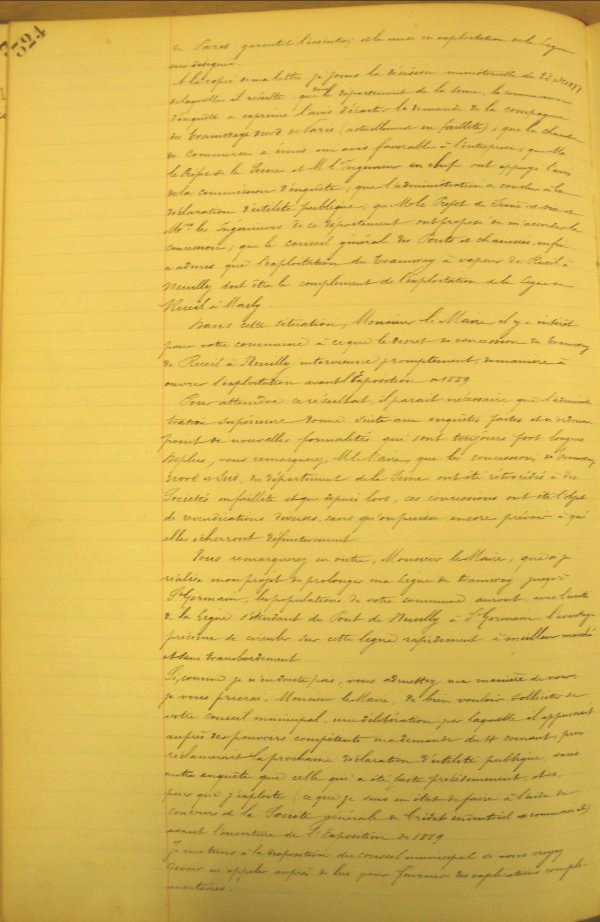 324
de Paris garantit l'exécution et la mise en exploitation de la ligne
susdésignée.
A la copie de ma lettre, je joins la décision ministérielle du 23 1887
de laquelle il résulte : que le département de la Seine, la commission
d'enquête a exprimé l'avis d'écarter la demande de la compagnie
des Tramways nord de Paris (actuellement en faillite), que la chambre
de Commerce a émis un avis favorable à l'entreprise ; que M. le
Préfet de la Seine et M. l'Ingénieur en chef ont appuyé l'avis
de la commission d'enquête ; que l'administration a conclu à la
déclaration d'utilité publique, que M. le Préfet de Seine et Oise et
M.rs les Ingénieurs de ce département ont proposé de m'accorder la
concession ; que le conseil général des Ponts et chaussées enfin
a admis que l'exploitation du tramway à vapeur de Rueil à
Neuilly doit être le complément de l'exploitation de la ligne de
Rueil à Marly.
Dans cette situation, Monsieur le Maire, il y a intérêt
pour votre commune à ce que le décret de concession du tramway
de Rueil à Neuilly intervienne promptement, de manière à
ouvrir l'exploitation avant l'Exposition de 1889
Pour atteindre ce résultat, il paraît nécessaire que l'adminis
tration supérieure donne suite aux enquêtes faites et n'ordonne
point de nouvelles formalités qui sont toujours fort longues
De plus, vous remarquerez, M. le Maire, que les concessions de tramways
nord et sud, du département de la Seine ont été rétrocédés à des
Sociétés en faillite et que depuis lors, ces concessions ont été l'objet
de revendications diverses, sans qu'on puisse encore prévoir à qui
elles écherront définitivement
Vous remarquerez en outre, Monsieur le Maire, que si je
réalise mon projet de prolonger ma ligne de tramway jusqu'à
St Germain, les populations de votre commune auront, avec l'unité
de la ligne s'étendant du Pont de Neuilly à St Germain l'avantage
précieux de circuler sur cette ligne rapidement à meilleur marché
et sans transbordement.
Si, comme je n'en doute pas, vous admettez ma manière de voir
je vous prierai, Monsieur le Maire, de bien vouloir solliciter de
votre conseil municipal, une délibération par laquelle il appuierait
auprès des pouvoirs compétents ma demande du 4 courant, pour
réclamer la prochaine déclaration d'utilité publique sans
autre enquête que celle qui a été faite précédemment, et ce,
pour que j'exploite (ce que je suis en état de faire à l'aide du
concours de la Société générale de Crédit industriel et commercial)
avant l'ouverture de l'Exposition de 1889
Je me tiens à la disposition du Conseil municipal si vous croyez
devoir en appeler auprès de lui pour fournir des explications complé-
mentaires.